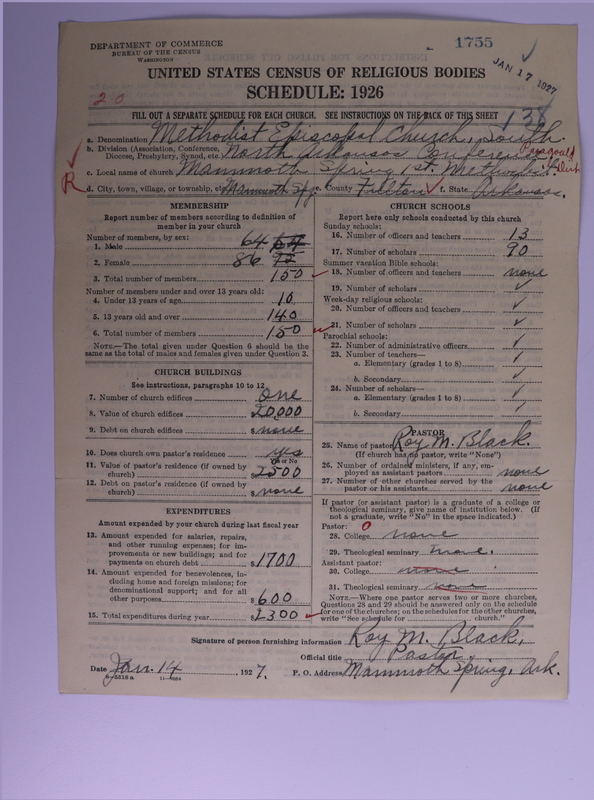 DEPARTMENT OF COMMERCE
BUREAU OF THE CENSUS
WASHINGTON
1755
JAN 17 1927
UNITED STATES CENSUS OF RELIGIOUS BODIES
SCHEDULE: 1926
20
138
FILL OUT A SEPARATE SCHEDULE FOR EACH CHURCH. SEE INSTRUCTIONS ON THE BACK OF THIS SHEET
a. Denomination Methodist Episcopal Church, South.
b. Division (Association, Conference, Diocese, Presbytery, Synod, etc.) North Arkansas Conference, Paragould Dist
c. Local name of church Mammoth Spring 1st. Methodist
R
d. City, town, village, or township, etc. Mammoth Spg. e. County Fulton f. State Arkansas.
MEMBERSHIP
Report number of members according to definition of
member in your church
Number of members, by sex:
1. Male 64
2. Female 86
3. Total number of members 150
Number of members under and over 13 years old:
4. Under 13 years of age 10
5. 13 years old and over 140
6. Total number of members 150
NOTE.—The total given under Question 6 should be the
same as the total of males and females given under Question 3.
CHURCH BUILDINGS
See instructions, paragraphs 10 to 12
7. Number of church edifices one
8. Value of church edifices $20,000
9. Debt on church edifices $none
10. Does church own pastor's residence yes
Yes or No
11. Value of pastor's residence (if owned by
church) $2500
12. Debt on pastor's residence (if owned by
church) $none
EXPENDITURES
Amount expended by your church during last fiscal year
13. Amount expended for salaries, repairs,
and other running expenses; for im-
provements or new buildings; and for
payments on church debt $1700
14. Amount expended for benevolences, in-
cluding home and foreign missions; for
denominational support; and for all
other purposes $600
15. Total expenditures during year $2300
CHURCH SCHOOLS
Report here only schools conducted by this church
Sunday schools:
16. Number of officers and teachers 13
17. Number of scholars 90
Summer vacation Bible schools:
18. Number of officers and teachers none
19. Number of scholars ✓
Week-day religious schools:
20. Number of officers and teachers ✓
21. Number of scholars ✓
Parochial schools:
22. Number of administrative officers ✓
23. Number of teachers—
a. Elementary (grades 1 to 8) ✓
b. Secondary ✓
24. Number of scholars—
a. Elementary (grades 1 to 8) ✓
b. Secondary ✓
PASTOR
25. Name of pastor Roy M. Black.
(If church has no pastor, write "None")
26. Number of ordained ministers, if any, em-
ployed as assistant pastors none
27. Number of other churches served by the
pastor or his assistants none
If pastor (or assistant pastor) is a graduate of a college or
theological seminary, give name of institution below. (If
not a graduate, write "No" in the space indicated.)
Pastor: 0
28. College none
29. Theological seminary none.
Assistant pastor:
30. College none
31. Theological seminary none
NOTE.—Where one pastor serves two or more churches,
Questions 28 and 29 should be answered only on the schedule
for one of the churches; on the schedules for the other churches,
write "See schedule for church."
Signature of person furnishing information Roy M. Black,
Official title Pastor
Date Jan. 14, 1927. P. O. Address Mammoth Spring, Ark.